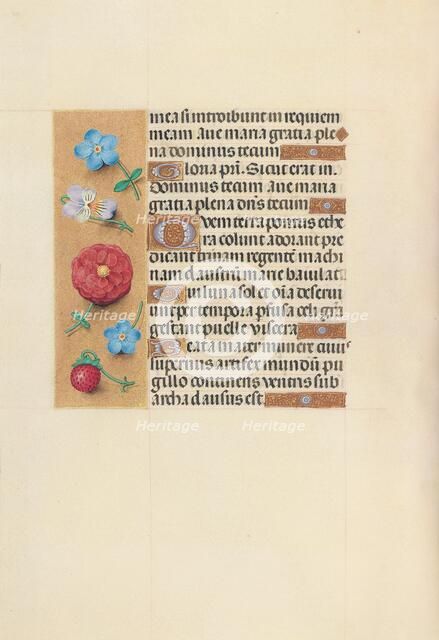 mea si introibunt in requiem
meam Aue maria gratia ple
na dominus tecum
Gloria pr̄i. Sicut erat in.
Dominus tecum Aue maria
gratia plena dn̄s tecum
Quem terra pontus ethe
ra colunt adorant pre
dicant trinam regentē machi
nam claustrū marie baiulat
Cui luna sol et oīa deseruiu
unt per tempora pfusa celi grā
gestant puelle viscera
Beata mater munere cuius
supernus artifex mundū pu
gillo continens ventris sub
archa clausus est
Heritage
Heritage
Heritage
Heritage
Heritage
Heritage
Heritage
Heritage
Heritage